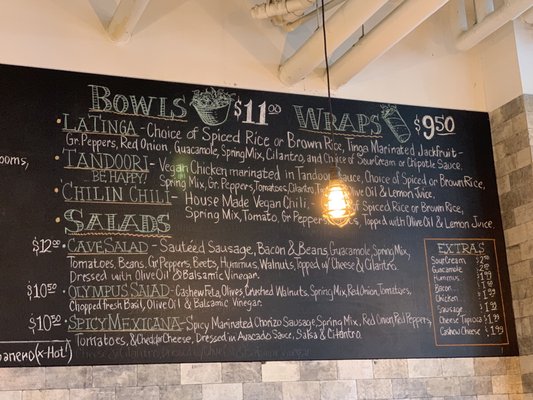 BOWLS $11.00 WRAPS $9.50
LATINGA - Choice of Spiced Rice or Brown Rice, Tinga Marinated Jackfruit -
Gr. Peppers, Red Onion, Guacamole, Spring Mix, Cilantro, and Choice of Sour Cream or Chipotle Sauce.
ooms,
TANDOORI - Vegan Chicken marinated in Tandoori Sauce, Choice of Spiced or Brown Rice,
BE HAPPY! Spring Mix, Gr. Peppers, Tomatoes, Cilantro, Olive Oil & Lemon Juice.
CHILIN CHILI - House Made Vegan Chili, of Spiced Rice or Brown Rice,
Spring Mix, Tomato, Gr. Peppers, Topped with Olive Oil & Lemon Juice.
SALADS
$12.00 CAVE SALAD - Sautéed Sausage, Bacon & Beans, Guacamole, Spring Mix,
Tomatoes, Beans, Gr. Peppers, Beets, Hummus, Walnuts, Topped w/ Cheese & Cilantro.
Dressed with Olive Oil & Balsamic Vinegar.
$10.50 OLYMPUS SALAD - Cashew Feta, Olives, Crushed Walnuts, Spring Mix, Red Onion, Tomatoes,
Chopped fresh Basil, Olive Oil & Balsamic Vinegar.
$10.50 SPICY MEXICANA - Spicy Marinated Chorizo Sausage, Spring Mix, Red Onion, Red Peppers,
Tomatoes, & Cheddar Cheese, Dressed in Avocado Sauce, Salsa & Cilantro.
anero (x-Hot)
EXTRAS
Sour Cream
Guacamole
Hummus
Bacon
Chicken
Sausage
Cheese Tapioca
Cashew Cheese